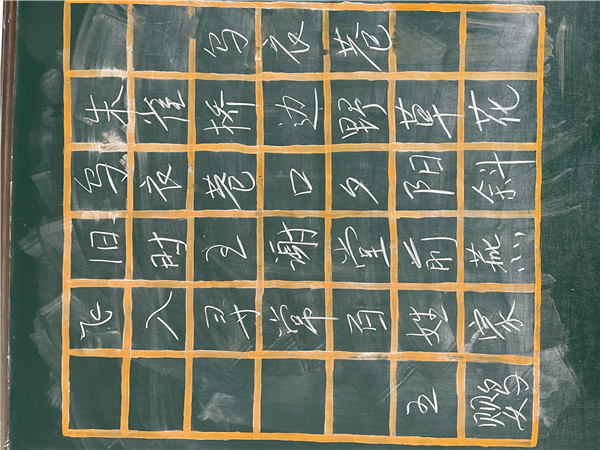 乌衣巷
朱雀桥边野草花
乌衣巷口夕阳斜
旧时王谢堂前燕
飞入寻常百姓家
王鹦